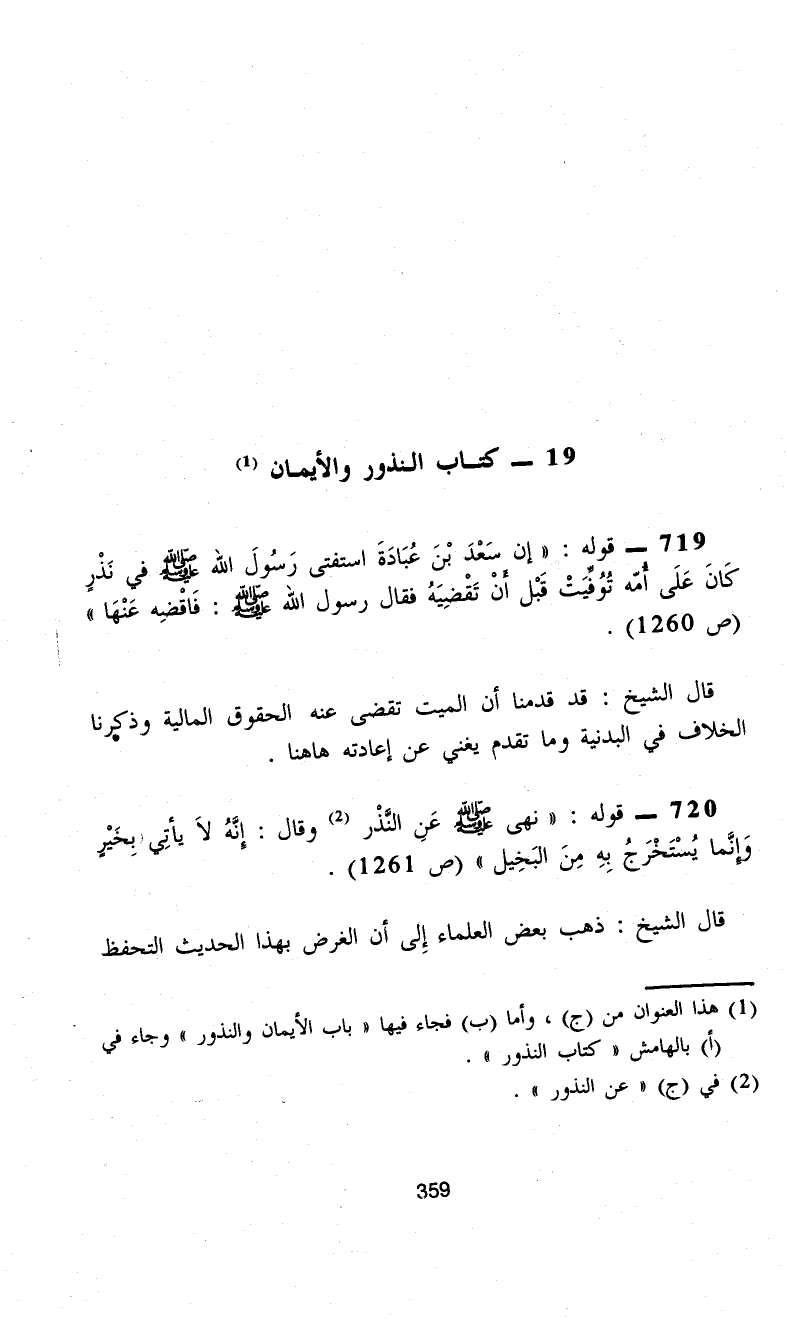 19 — كتـاب النذور والأيمـان (1)
719 — قوله : « إن سَعْدَ بْنَ عُبَادَةَ استفتى رَسُولَ الله ﷺ في نَذْرٍ
كَانَ عَلَى أُمّه تُوُفِّيَتْ قَبْل أَنْ تَقْضِيَهُ فقال رسول الله ﷺ : فَاقْضِه عَنْهَا »
(ص 1260) .
قال الشيخ : قد قدمنا أن الميت تقضى عنه الحقوق المالية وذكرنا
الخلاف في البدنية وما تقدم يغني عن إعادته هاهنا .
720 — قوله : « نهى ﷺ عَنِ النَّذْر (2) وقال : إِنَّهُ لاَ يأتِي بِخَيْرٍ
وَإِنَّما يُسْتَخْرَجُ بِهِ مِنَ البَخِيل » (ص 1261) .
قال الشيخ : ذهب بعض العلماء إِلى أن الغرض بهذا الحديث التحفظ
(1) هذا العنوان من (ج) ، وأما (ب) فجاء فيها « باب الأيمان والنذور » وجاء في
(أ) بالهامش « كتاب النذور » .
(2) في (ج) « عن النذور » .
359